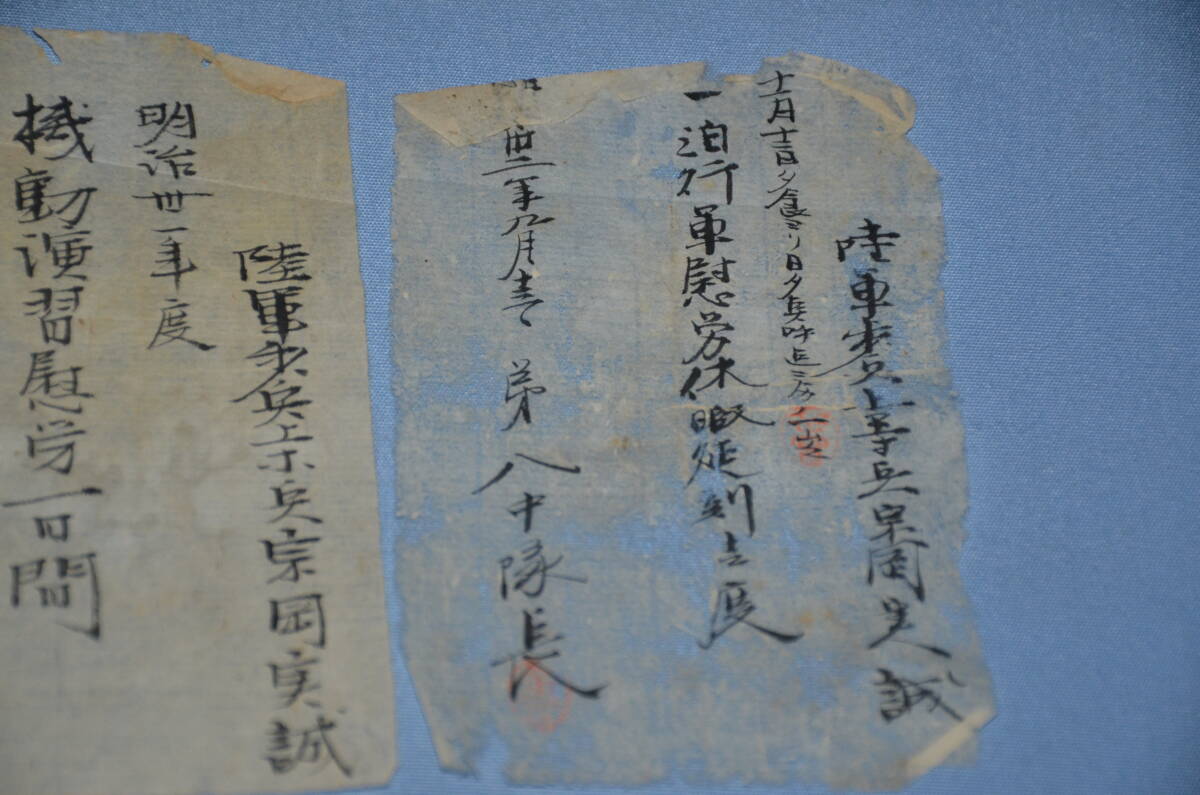 陸軍歩兵上等兵宗岡実誠
十月十三日夕食ヨリ日夕兵呼
一泊行軍慰労休暇延刻立辰
卅二年九月 第八中隊長
陸軍歩兵上等兵宗岡実誠
明治卅一年度
機動演習慰労一日間